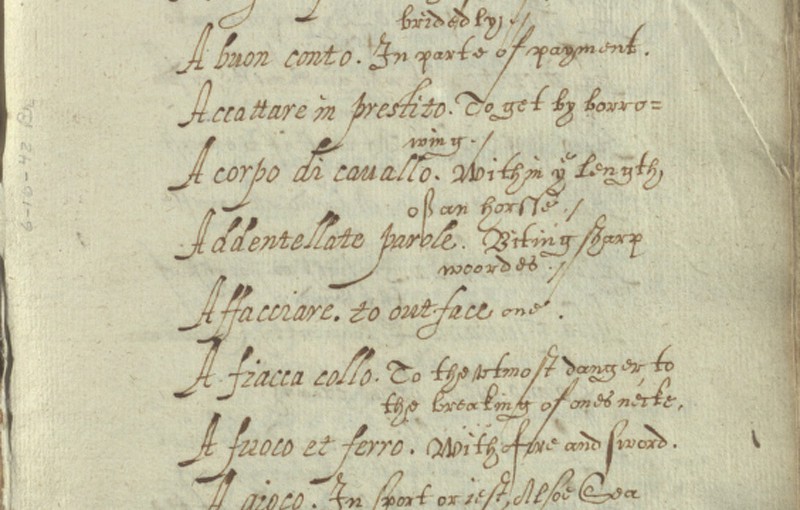 bridedly,./
A buon conto. In parte of payment.
Accattare in prestito. To get by borro=
wing./
A corpo di cauallo. Within yͤ length,
of an horsse./
Addentellate parole. Biting sharp
woordes./
Affacciare. to outface one.
A fiacca collo. To the vtmost danger, to
the breaking of ones necke.
A fuoco et ferro. With fire and sword.
A gioco. In sport or iest, Alsoe Sea
6-10-42